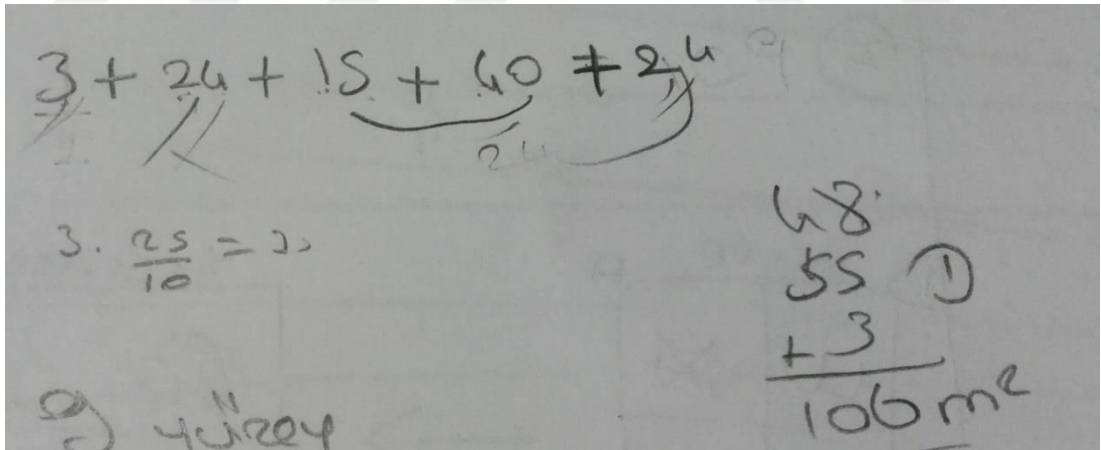 3 + 24 + 15 + 40 + 24
24
3 . 25/10 =
48
55 ①
+ 3
106 m²
yüzey